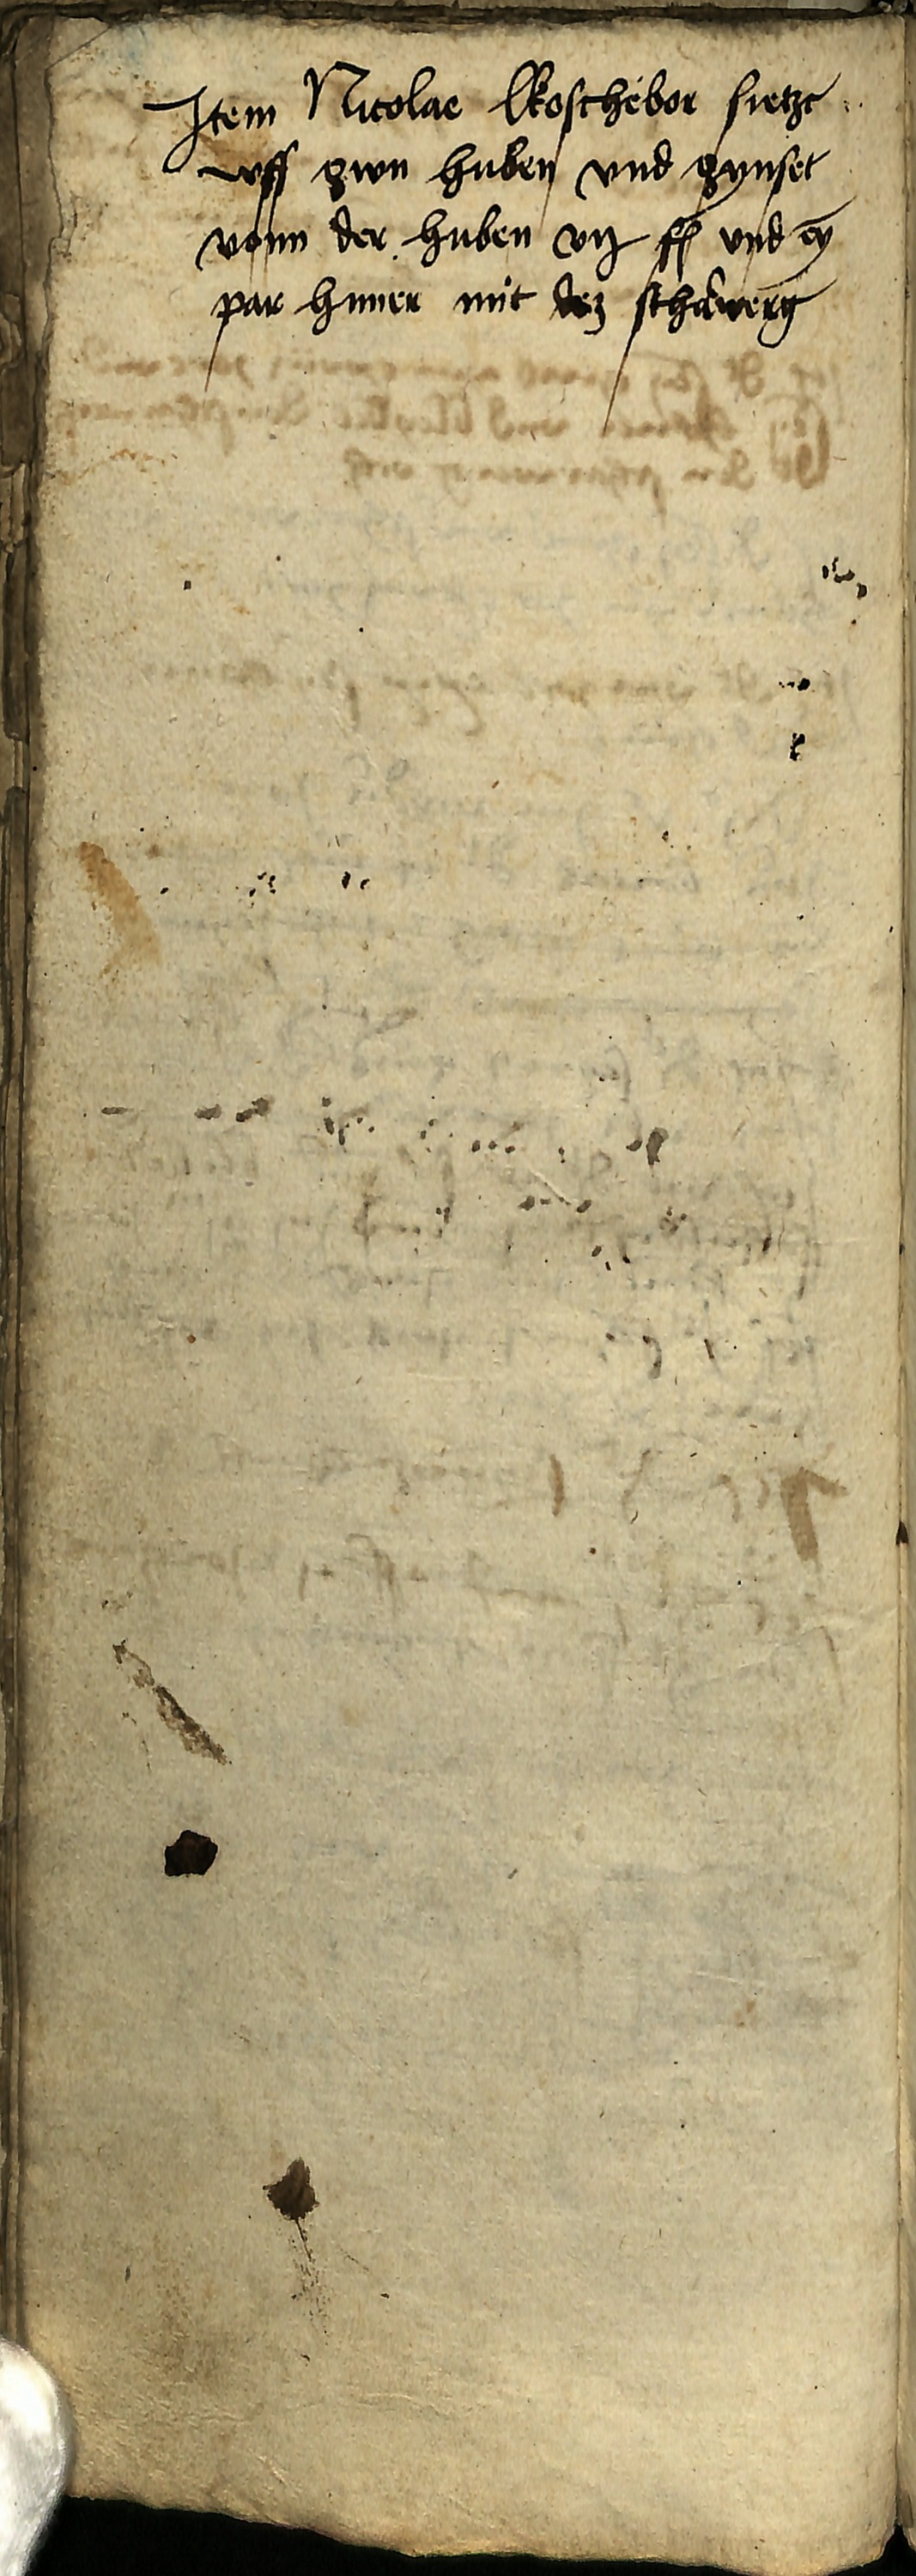 Item Nicolae Koschebor sietzt
uff zwn huben und zynset
vonn der huben vij ß und ey
par huner mit dez scharwerg